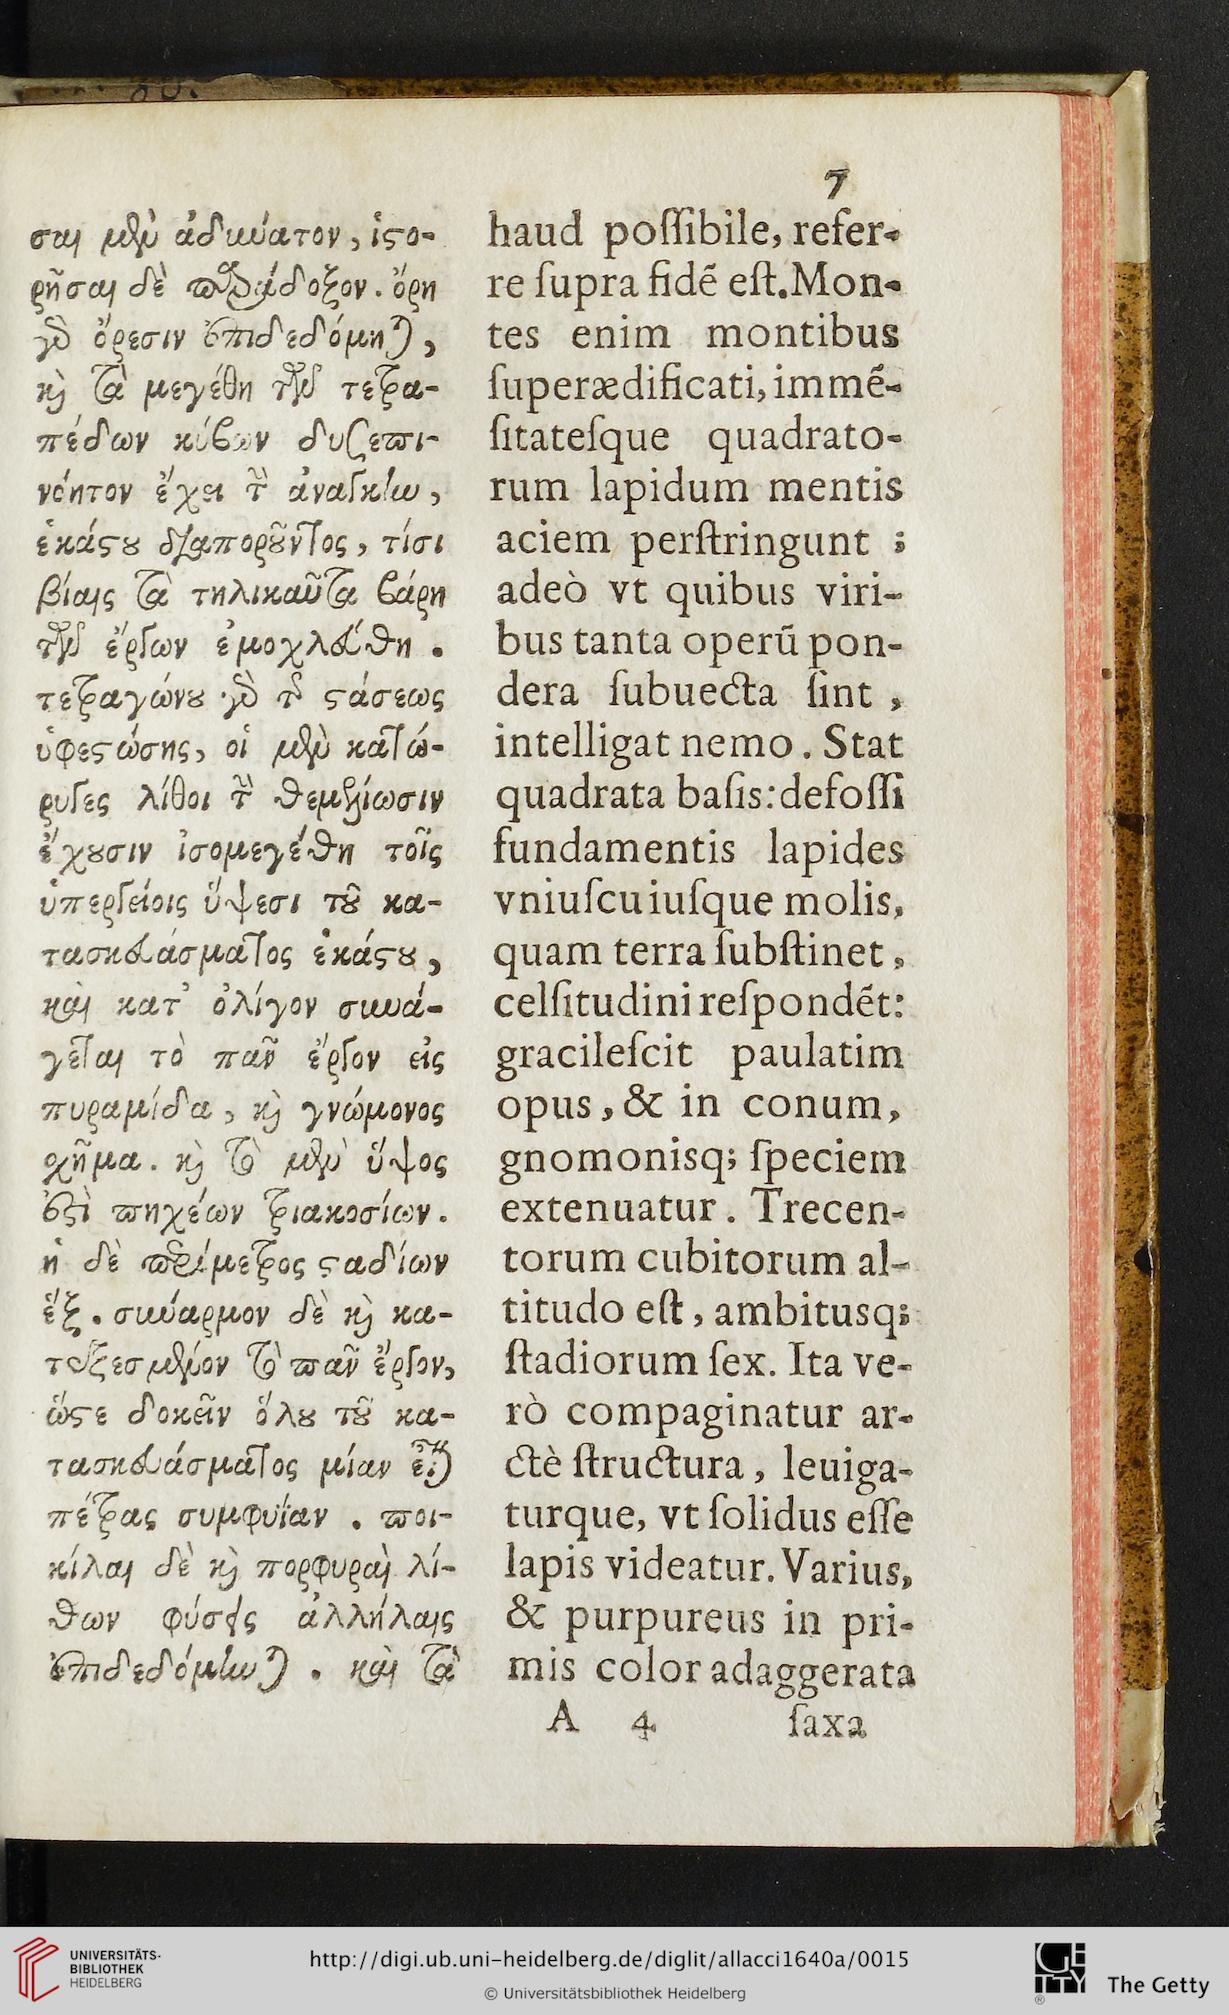 7
σαι μὲν ἀδύνατον, ἱστο-
ρῆσαι δὲ παράδοξον. ὄρη
γὰρ ὄρεσιν ἐπιδεδόμηται,
καὶ τὰ μεγέθη τῶν τετρα-
πέδων κύβων δυσεπι-
νόητον ἔχει τὴν ἀναγωγὴν,
ἑκάστου διαπορoῦντος, τίσι
βίαις τὰ τηλικαῦτα βάρη
τῶν ἔργων ἐμοχλεύθη.
τετραγώνου γὰρ τῆς στάσεως
ὑφεστώσης, οἱ μὲν κατώ-
ρυγες λίθοι τὴν θεμελίωσιν
ἔχουσιν ἰσομεγέθη τοῖς
ὑπεργείοις ὕψεσι τοῦ κα-
τασκευάσματος ἑκάστου,
καὶ κατ' ὀλίγον συνά-
γεται τὸ πᾶν ἔργον εἰς
πυραμίδα, καὶ γνώμονος
σχῆμα. καὶ τὸ μὲν ὕψος
ἐστὶ πηχέων τριακοσίων.
ἡ δὲ περίμετρος σταδίων
ἕξ. συνάρμον δὲ καὶ κα-
τεξεσμένον τὸ πᾶν ἔργον,
ὥστε δοκεῖν ὅλου τοῦ κα-
τασκευάσματος μίαν εἶναι
πέτρας συμφυΐαν. ποι-
κίλαι δὲ καὶ πορφυραὶ λί-
θων φύσεις ἀλλήλαις
ἐπιδεδόμηνται. καὶ τὰ
haud poſſibile, refer-
re ſupra fidẽ eſt. Mon-
tes enim montibus
ſuperædificati, immẽ-
ſitateſque quadrato-
rum lapidum mentis
aciem perſtringunt ;
adeò vt quibus viri-
bus tanta operũ pon-
dera ſubuecta ſint ,
intelligat nemo. Stat
quadrata baſis: defoſſi
fundamentis lapides
vniuſcuiuſque molis,
quam terra ſubſtinet,
celſitudini reſpondẽt:
gracileſcit paulatim
opus, & in conum,
gnomonisq; ſpeciem
extenuatur. Trecen-
torum cubitorum al-
titudo eſt, ambitusq;
ſtadiorum ſex. Ita ve-
rò compaginatur ar-
ctè ſtructura, leuiga-
turque, vt ſolidus eſſe
lapis videatur. Varius,
& purpureus in pri-
mis color adaggerata
A 4 ſaxa
UNIVERSITÄTS-
BIBLIOTHEK
HEIDELBERG
http://digi.ub.uni-heidelberg.de/diglit/allacci1640a/0015
© Universitätsbibliothek Heidelberg
GETTY
®
The Getty